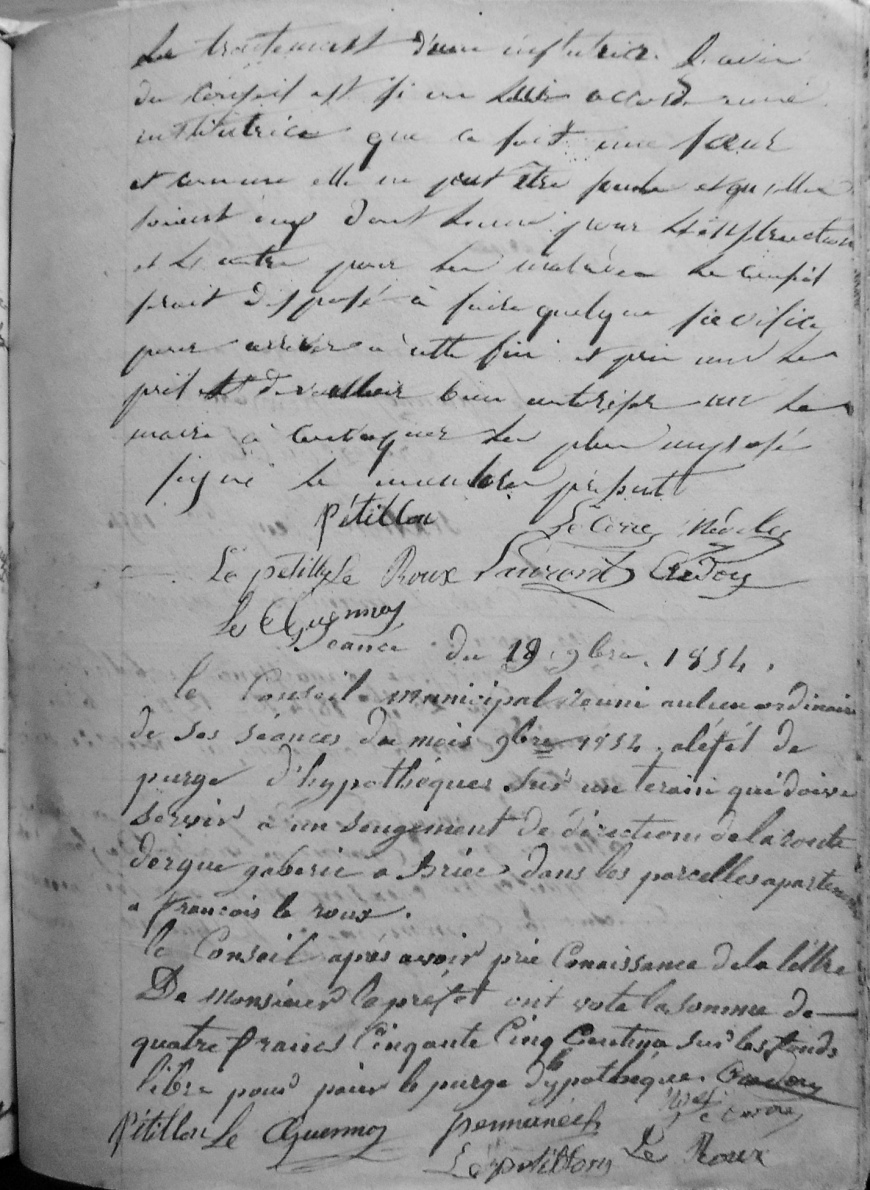 Le traitement d'une institutrice. l'avis
du conseil est si on lui accorde une
institutrice que ce soit une sœur
et comme elle ne peut être seule et qu'elles
soient dont l'une pour l'instruction
et l'autre pour les malades Le conseil
serait disposé à faire quelque sacrifice
pour arriver à cette fin et prie mr le
prefet de vouloir bien autoriser mr Le
maire à convoquer les plus imposé
signé le membres présent
Pétillon Le Corre Nédelec
Le petillon Le Roux Laurent Credou
Le Guennou
Séance du 19 9bre. 1854.
le Conseil municipal reuni au lieu ordinaire
de ses séances du mois 9bre 1854. a léfét de
purge d'hypothéques sur un terain qui doive
servir a un sengement de directions de la route
dergue gaberic a Briec dans les parcelles aparten
a francois le roux.
le Conseil aprés avoir prie Conaissance de la léttre
De monsieur le préfet ont voté la somme de
quatre francs Cinqante Cinq Centimes sur les fonds
libre pour paier le purge d'hypothéque. Credou
Pétillon Le Guennou
Le petillon Le Roux